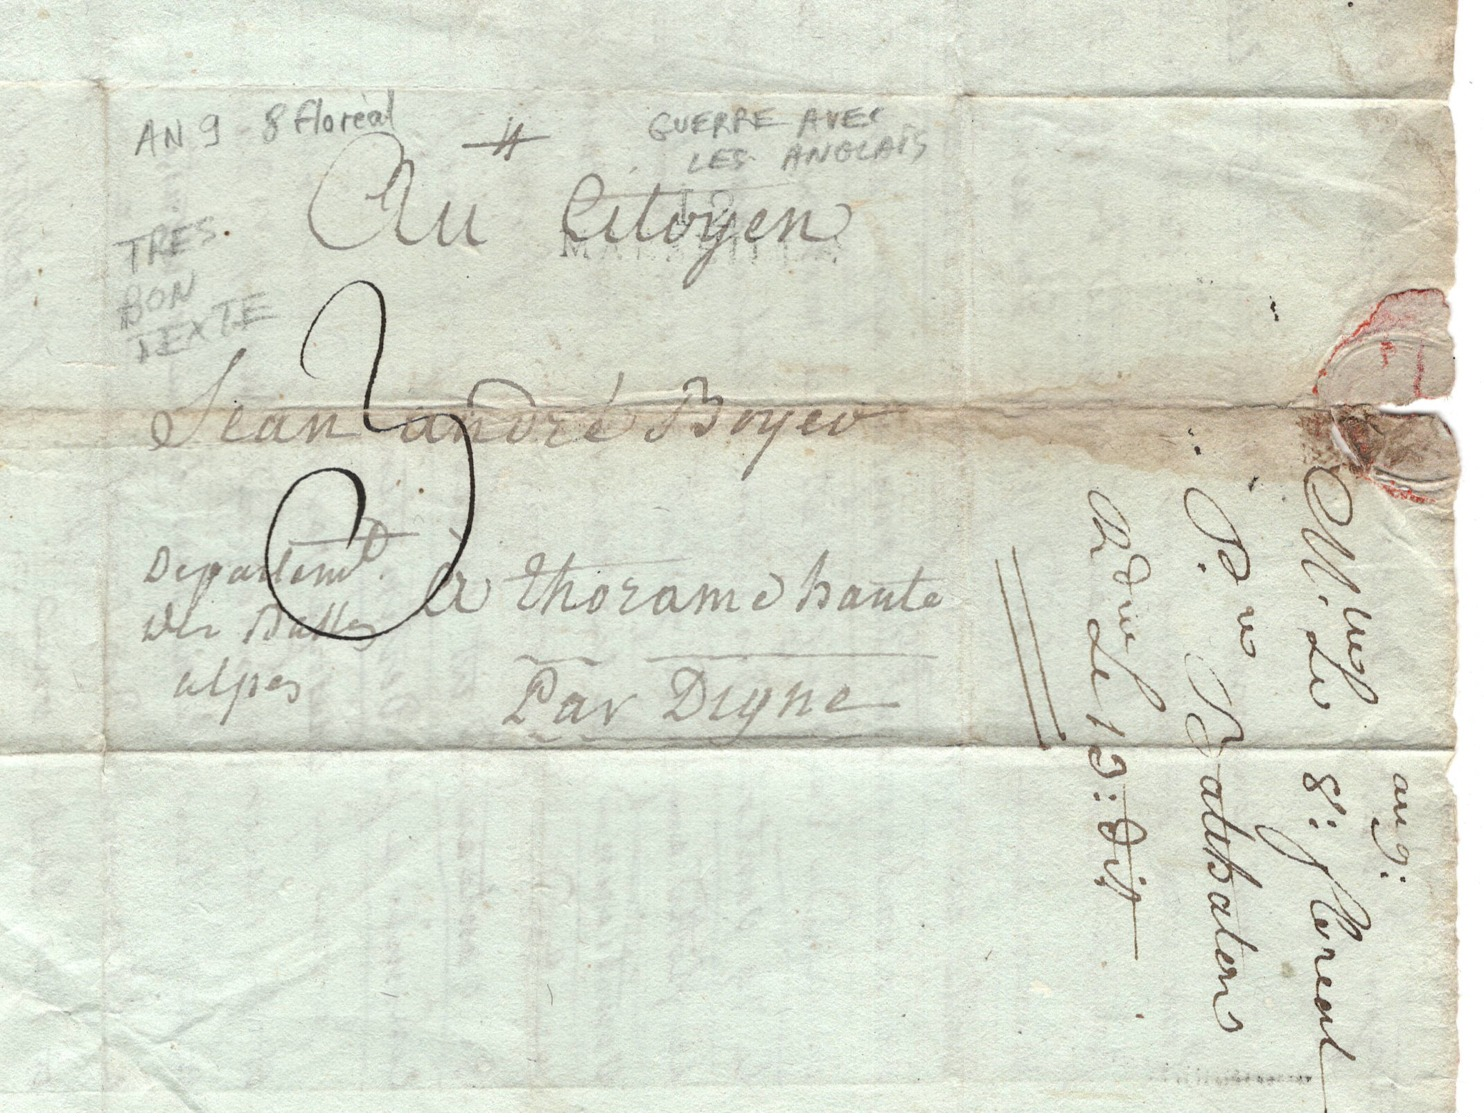 AN 9 8 floréal
GUERRE AVEC
LES ANGLAIS
TRES
BON
TEXTE
Au Citoyen
12
MARSEILLE
3
Jean andré Boyer
Departemt.
Des Basses
alpes
à thorame haute
Par Digne
an 9:
Mlle. Le 8: floreal
Pre
Rdue Le 13: dit